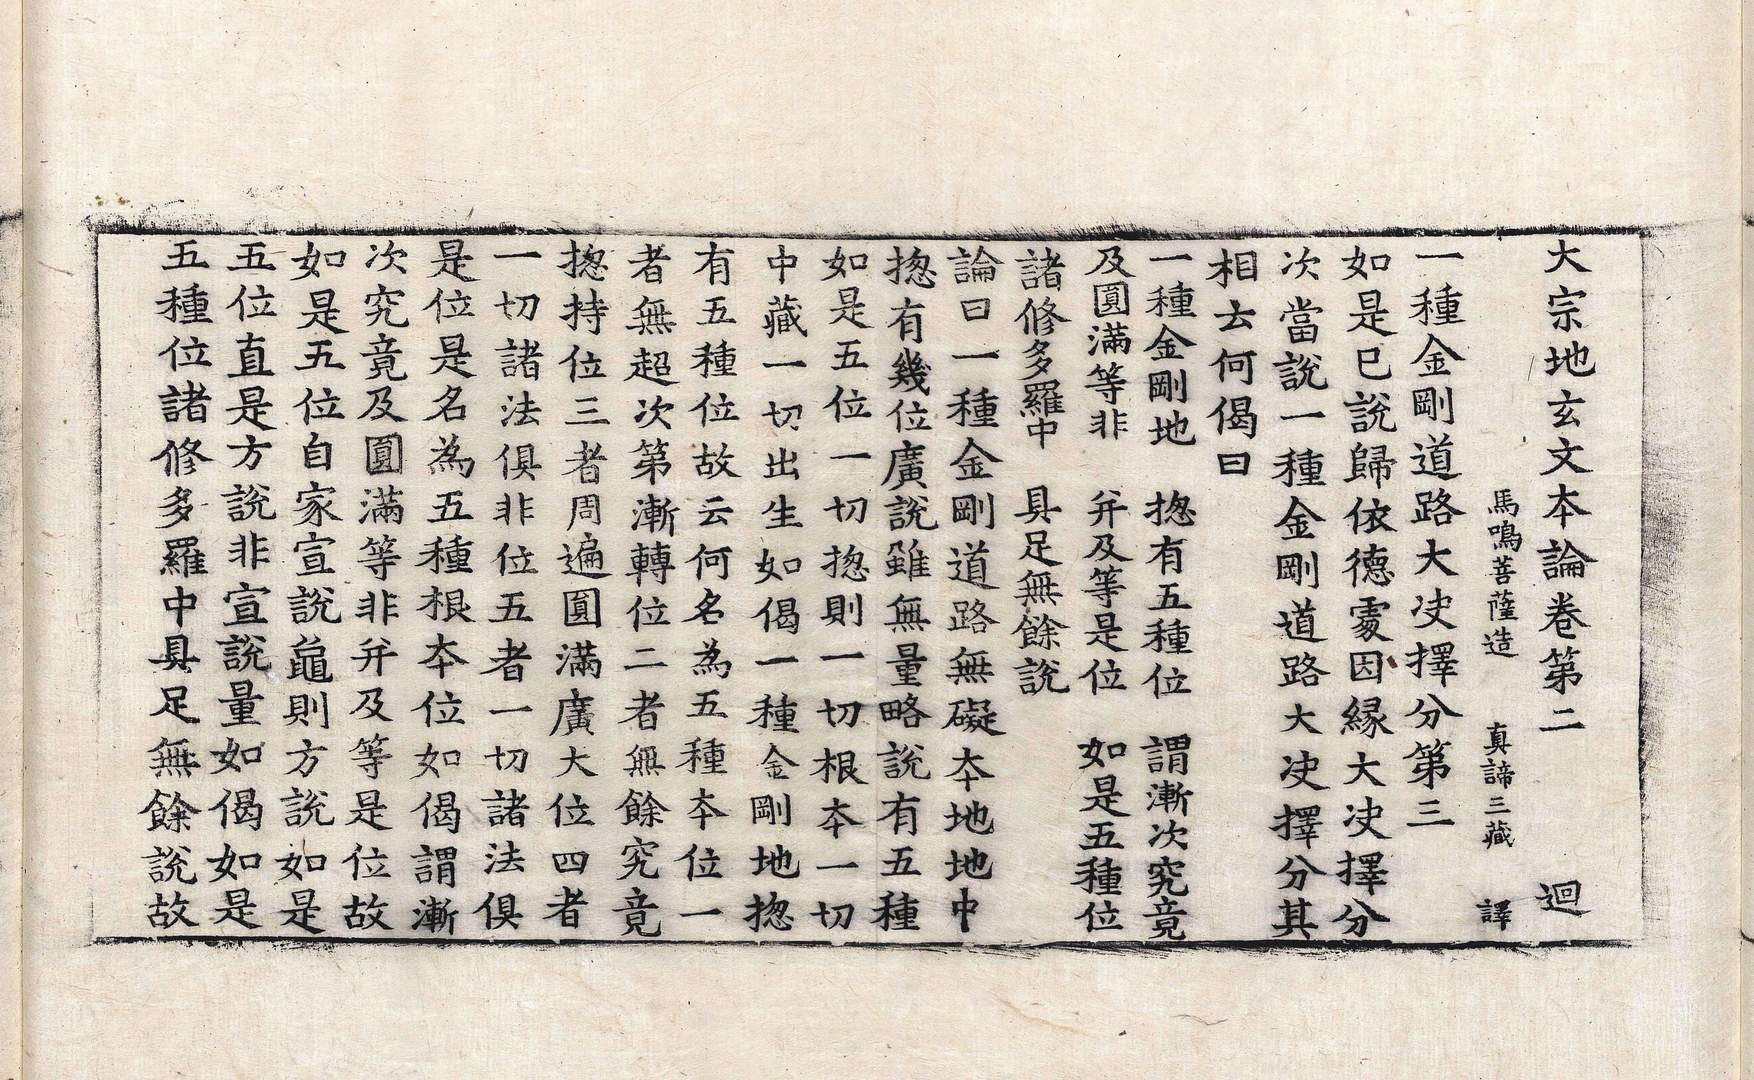 大宗地玄文本論卷第二　迴
馬鳴菩薩造　真諦三藏　譯
一種金剛道路大决擇分第三
如是已說歸依德處因縁大决擇分
次當說一種金剛道路大决擇分其
相云何偈曰
一種金剛地　揔有五種位　謂漸次究竟
及圓滿等非　并及等是位　如是五種位
諸修多羅中　具足無餘說
論曰一種金剛道路無礙本地地中
揔有幾位廣說雖無量略說有五種
如是五位一切揔則一切根本一切
中藏一切出生如偈一種金剛地揔
有五種位故云何名為五種本位一
者無超次第漸轉位二者無餘究竟
揔持位三者周遍圓滿廣大位四者
一切諸法俱非位五者一切諸法俱
是位是名為五種根本位如偈謂漸
次究竟及圓滿等非并及等是位故
如是五位自家宣說龜則方說如是
五位直是方說非宣說量如偈如是
五種位諸修多羅中具足無餘說故